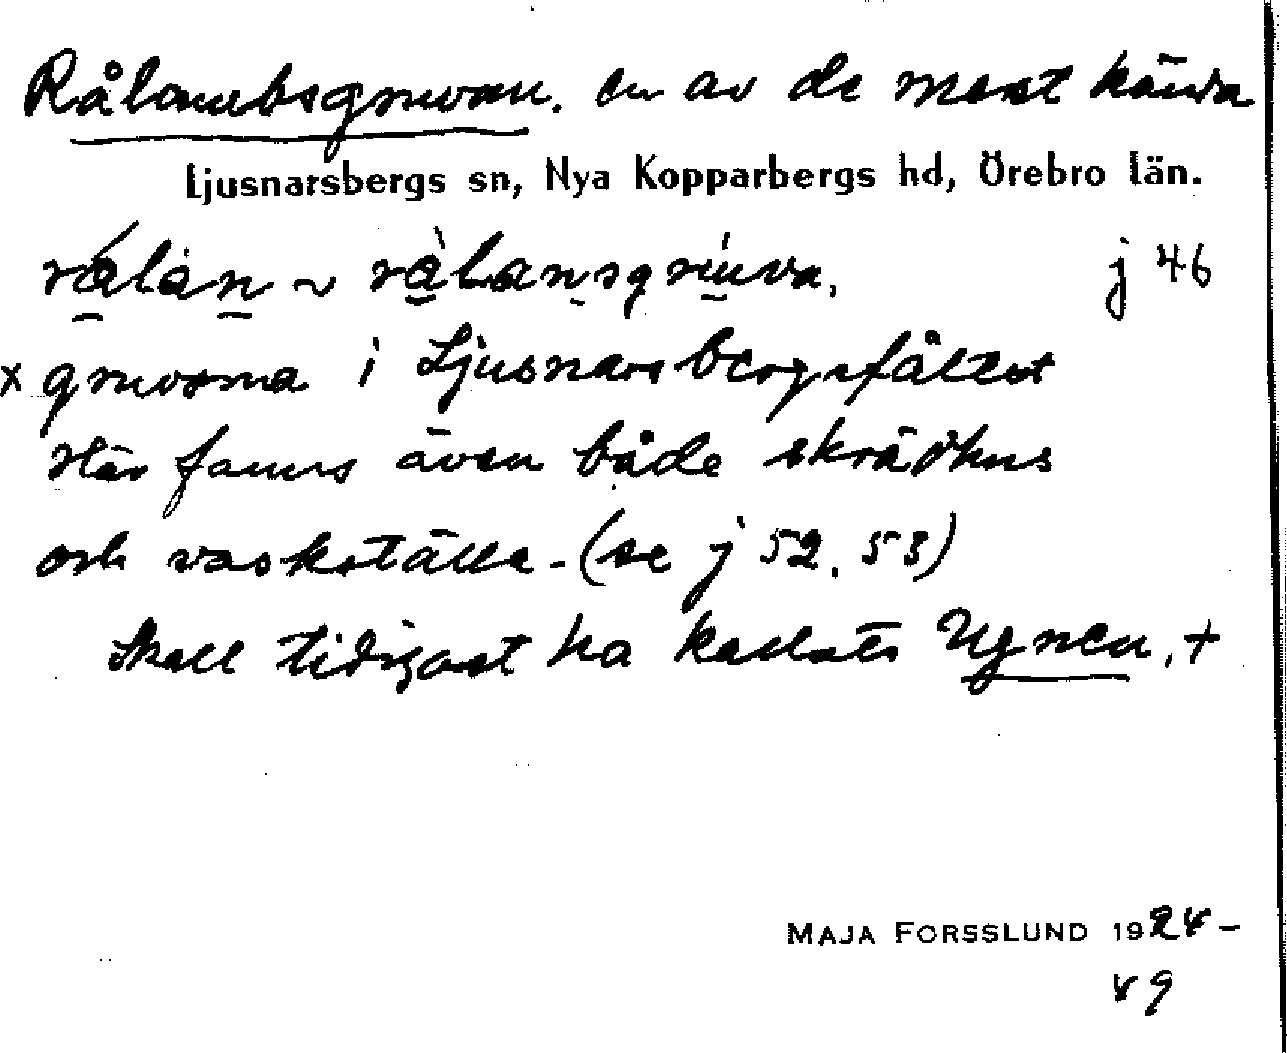 Rålambsgruvan. en av de mest kända
Ljusnarsbergs sn, Nya Kopparbergs hd, Örebro län.
rålan ~ rålansgruva. j 46
x gruvorna i Ljusnarsbergsfältet
Här fanns även både skrädhus
och vaskställe - (se j 52, 53)
Skall tidigast ha kallats Ugnen, +
MAJA FORSSLUND 1924-
49